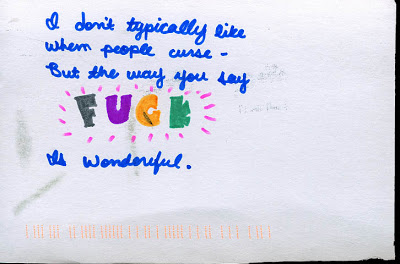 I don't typically like
when people curse -
But the way you say
FUCK
Is Wonderful.